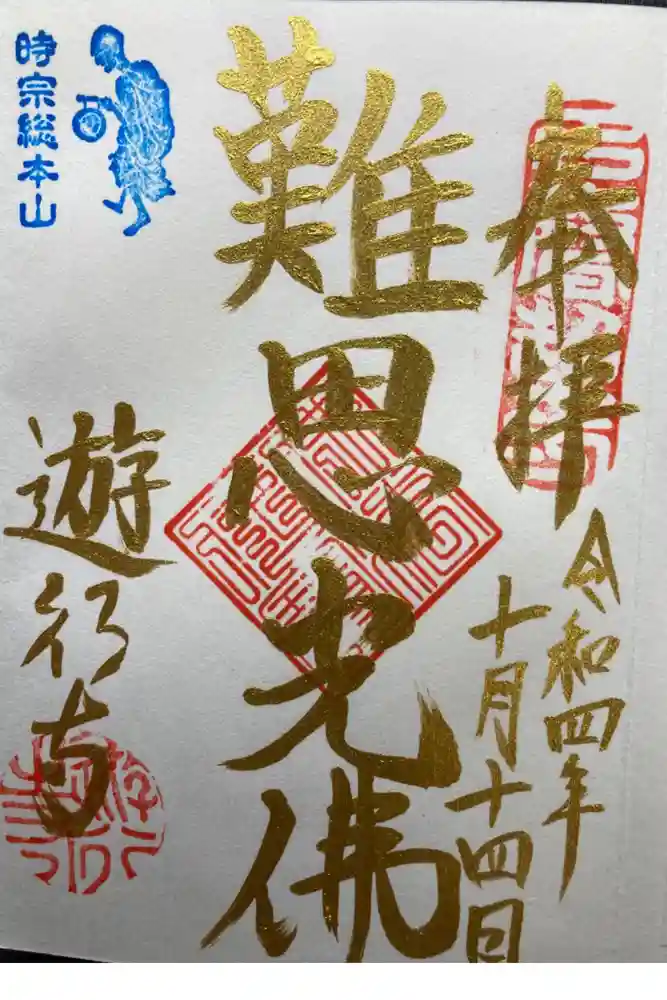 奉拝
令和四年
十月十四日
難思光佛
遊行寺
時宗総本山